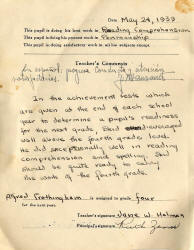 Date May 24, 1939
This pupil is doing his best work in Reading Comprehension
This pupil is doing his poorest work in Penmanship
This pupil is doing satisfactory work in all his subjects except
Teacher's Comments
In the achievement tests which
are given at the end of each school
year to determine a pupil's readiness
for the next grade, developed
well above the fourth grade level.
He did exceptionally well in reading
comprehension and spelling.
should be quite ready to carry
the work of the fourth grade.
Alfred Frothingham is assigned to grade four
for the next year.
Teacher's signature Jane W. Holman
Principal's signature